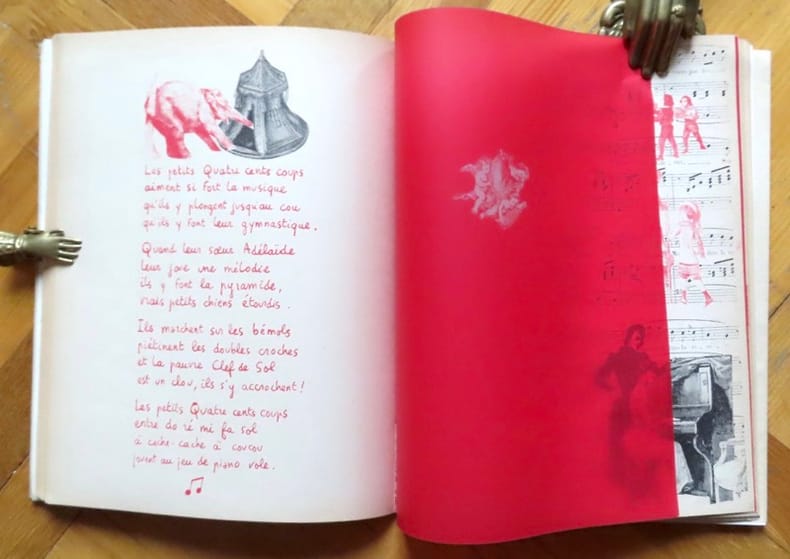 Les petits Quatre cents coups
aiment si fort la musique
qu'ils y plongent jusqu'au cou
qu'ils y font leur gymnastique.
Quand leur sœur Adélaïde
leur joue une mélodie
ils y font la pyramide,
vrais petits chiens étourdis.
Ils marchent sur les bémols
piétinent les doubles croches
et la pauvre Clef de Sol
est un clou, ils s'y accrochent!
Les petits Quatre cents coups
entre do ré mi fa sol
à cache-cache à coucou
jouent au jeu de piano vole.